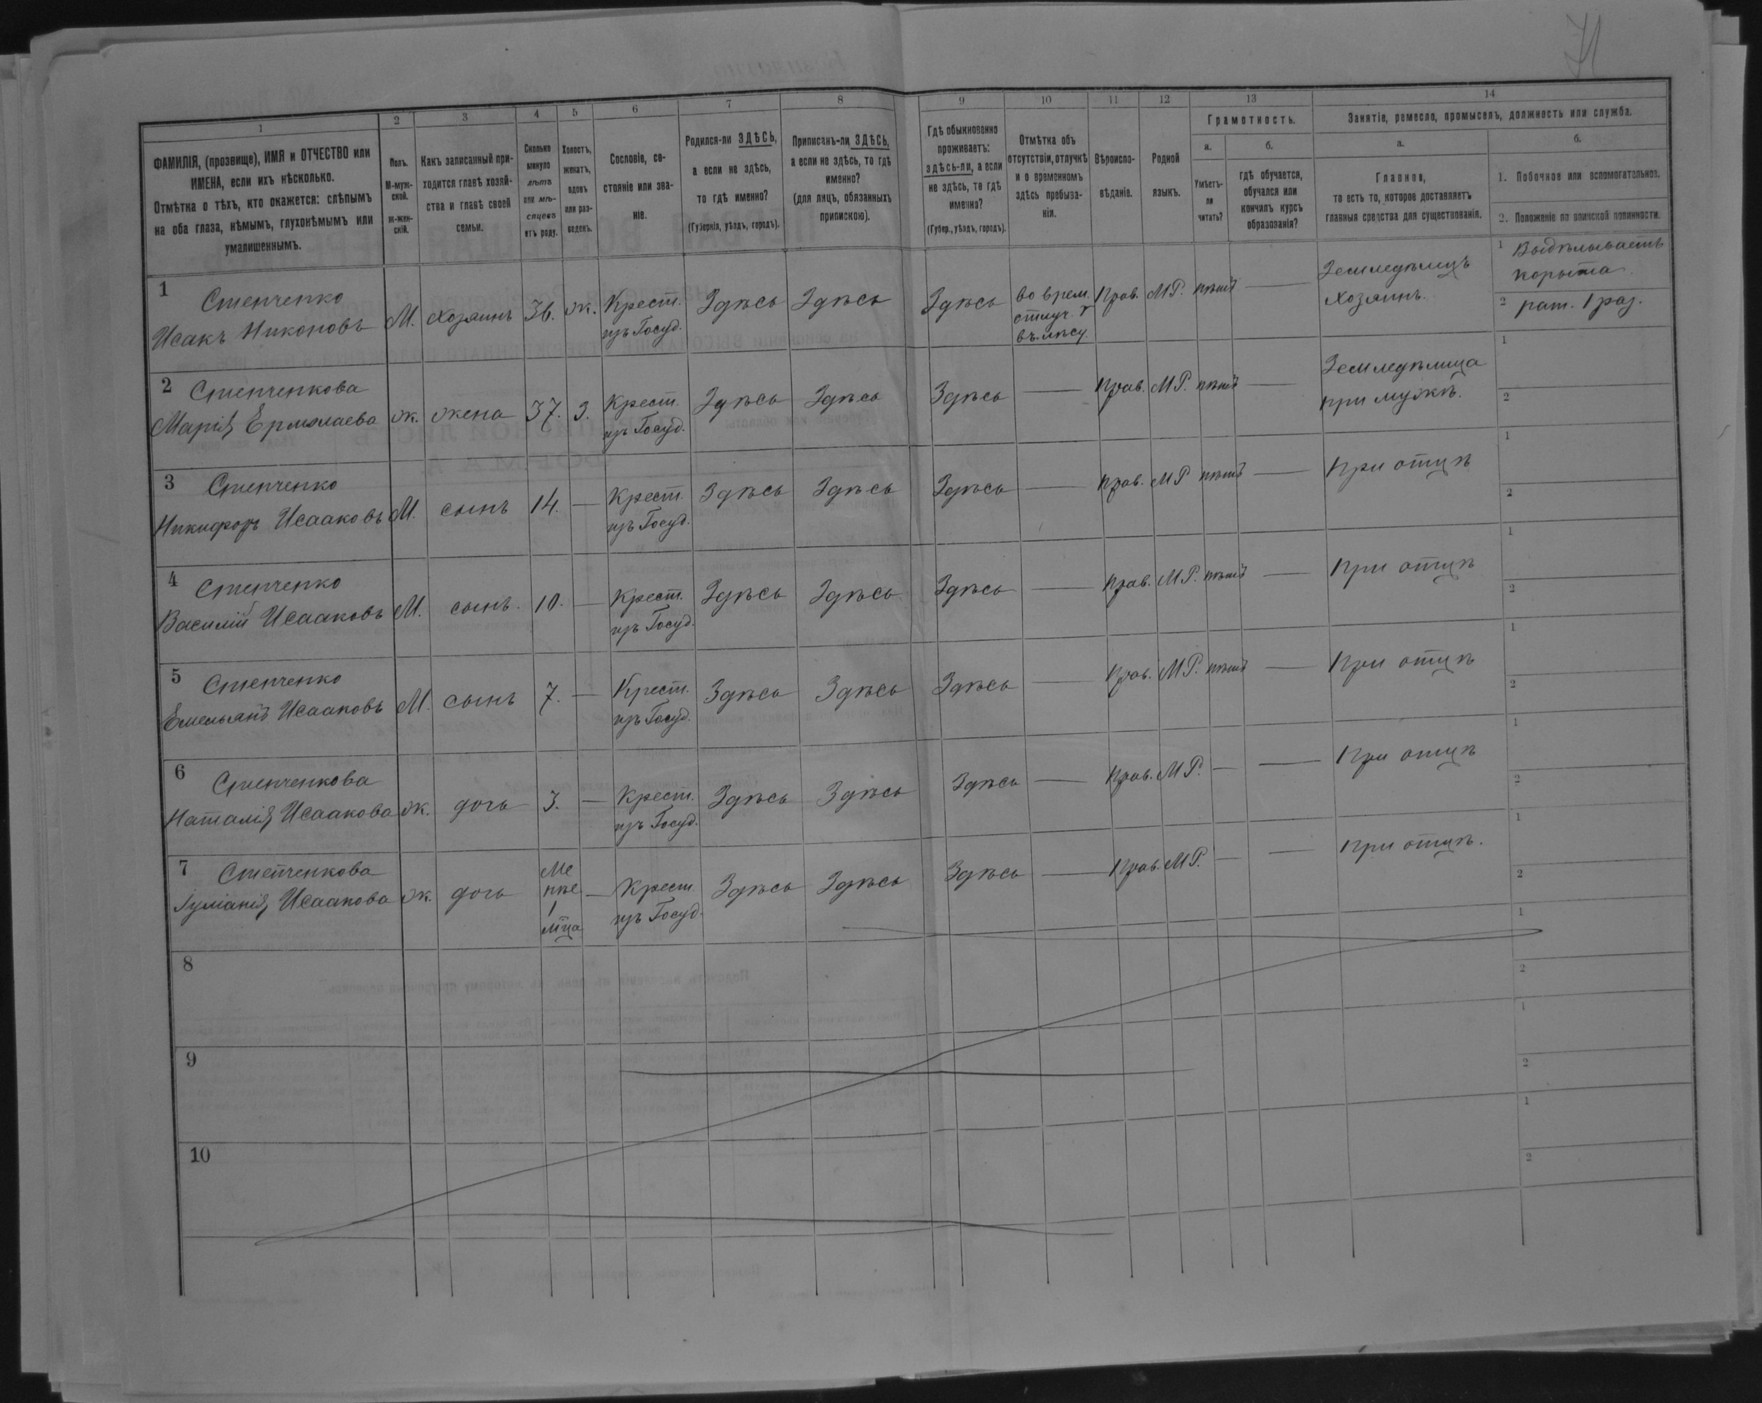 71
1 2 3 4 5 6 7 8 9 10 11 12 13 14
ФАМИЛІЯ, (прозвище), ИМЯ и ОТЧЕСТВО или
ИМЕНА, если ихъ нѣсколько.
Отмѣтка о тѣхъ, кто окажется: слѣпымъ
на оба глаза, нѣмымъ, глухонѣмымъ или
умалишеннымъ.
Полъ.
М-муж-
ской.
ж-жен-
скій.
Какъ записанный при-
ходится главѣ хозяй-
ства и главѣ своей
семьи.
Сколько
минуло
лѣтъ
или мѣ-
сяцевъ
отъ роду.
Холостъ,
женатъ,
вдовъ
или раз-
веденъ.
Сословіе, со-
стояніе или зва-
ніе.
Родился-ли ЗДѢСЬ,
а если не здѣсь,
то гдѣ именно?
(Губернія, уѣздъ, городъ).
Приписанъ-ли ЗДѢСЬ,
а если не здѣсь, то гдѣ
именно?
(для лицъ, обязанныхъ
припискою).
Гдѣ обыкновенно
проживаетъ:
здѣсь-ли, а если
не здѣсь, то гдѣ
именно?
(Губер., уѣздъ, городъ).
Отмѣтка объ
отсутствіи, отлучкѣ
и о временномъ
здѣсь пребыва-
ніи.
Вѣроиспо-
вѣданіе.
Родной
языкъ.
Грамотность.
а.
Умѣетъ-
ли
читать?
б.
гдѣ обучается,
обучался или
кончилъ курсъ
образованія?
Занятіе, ремесло, промыселъ, должность или служба.
а.
Главное,
то есть то, которое доставляетъ
главныя средства для существованія.
б.
1. Побочное или вспомогательное.
2. Положеніе по воинской повинности.
1 Степченко
Исакъ Никоновъ М. хозяинъ 36. ж. Крест. изъ Госуд. Здѣсь Здѣсь Здѣсь во врем. отлуч. въ лѣсу. Прав. М.Р. нѣтъ — Земледѣлецъ хозяинъ. 1 Выдѣлываетъ корыта 2 рат. 1 раз.
2 Степченкова
Марія Ермолаева ж. жена 37. з. Крест. изъ Госуд. Здѣсь Здѣсь Здѣсь — Прав. М.Р. нѣтъ — Земледѣлица при мужѣ. 1 2
3 Степченко
Никифоръ Исааковъ М. сынъ 14. — Крест. изъ Госуд. Здѣсь Здѣсь Здѣсь — Прав. М.Р нѣтъ — При отцѣ 1 2
4 Степченко
Василій Исааковъ М. сынъ. 10. — Крест. изъ Госуд. Здѣсь Здѣсь Здѣсь — Прав. М.Р. нѣтъ — При отцѣ 1 2
5 Степченко
Емельянъ Исааковъ М. сынъ 7. — Крест. изъ Госуд. Здѣсь Здѣсь Здѣсь — Прав. М.Р. нѣтъ — При отцѣ 1 2
6 Степченкова
Наталія Исаакова ж. дочь 3. — Крест. изъ Госуд. Здѣсь Здѣсь Здѣсь — Прав. М.Р. — — При отцѣ 1 2
7 Степченкова
Исаакова ж. дочь Ме нѣе 1 мѣца — Крест. изъ Госуд. Здѣсь Здѣсь Здѣсь — Прав. М.Р. — — При отцѣ. 1 2
8 1 2
9 1 2
10 1 2